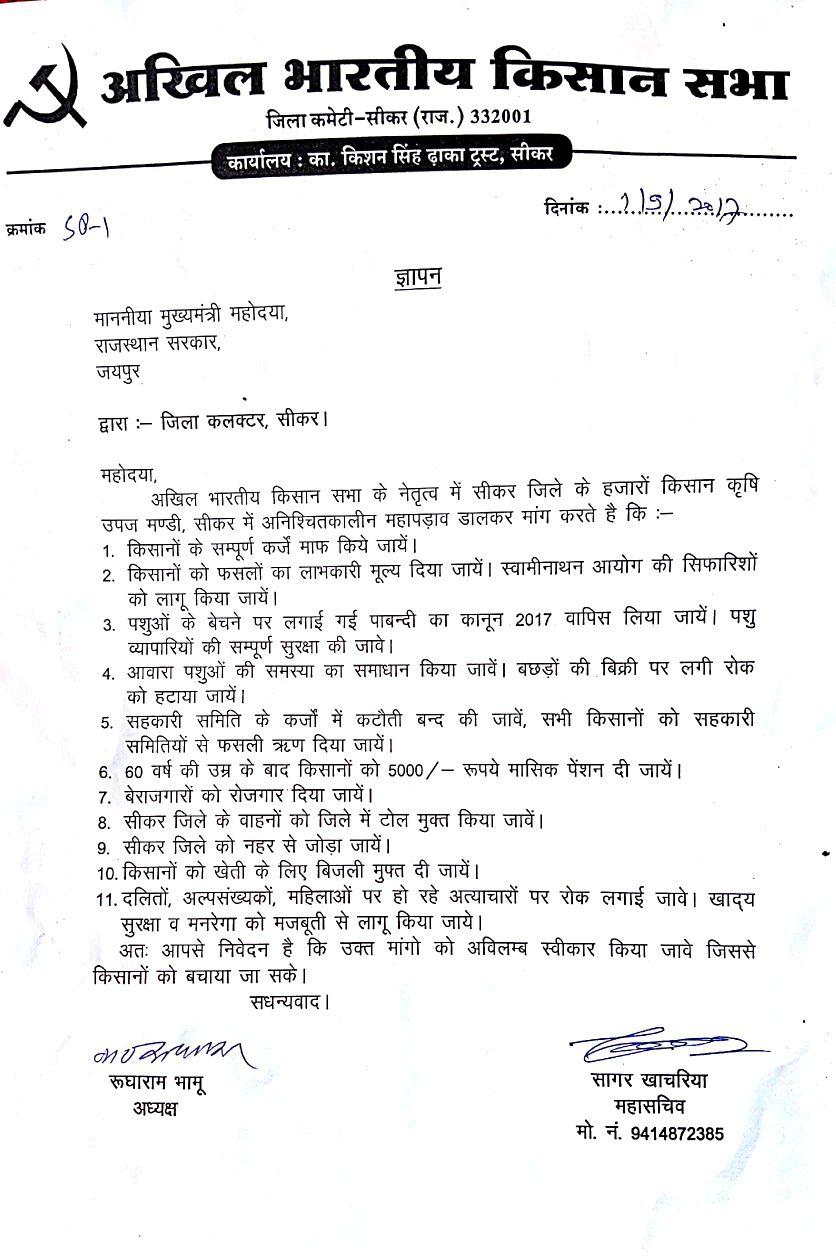 अखिल भारतीय किसान सभा
जिला कमेटी-सीकर (राज.) 332001
कार्यालय : का. किशन सिंह ढ़ाका ट्रस्ट, सीकर
दिनांक :
क्रमांक
ज्ञापन
माननीया मुख्यमंत्री महोदया,
राजस्थान सरकार,
जयपुर
द्वारा :– जिला कलक्टर, सीकर।
महोदया,
अखिल भारतीय किसान सभा के नेतृत्व में सीकर जिले के हजारों किसान कृषि
उपज मण्डी, सीकर में अनिश्चितकालीन महापड़ाव डालकर मांग करते है कि :–
1. किसानों के सम्पूर्ण कर्जे माफ किये जायें।
2. किसानों को फसलों का लाभकारी मूल्य दिया जायें। स्वामीनाथन आयोग की सिफारिशों
को लागू किया जायें।
3. पशुओं के बेचने पर लगाई गई पाबन्दी का कानून 2017 वापिस लिया जायें। पशु
व्यापारियों की सम्पूर्ण सुरक्षा की जावे।
4. आवारा पशुओं की समस्या का समाधान किया जावें। बछड़ों की बिक्री पर लगी रोक
को हटाया जायें।
5. सहकारी समिति के कर्जो में कटौती बन्द की जावें, सभी किसानों को सहकारी
समितियों से फसली ऋण दिया जायें।
6. 60 वर्ष की उम्र के बाद किसानों को 5000/– रूपये मासिक पेंशन दी जायें।
7. बेराजगारों को रोजगार दिया जायें।
8. सीकर जिले के वाहनों को जिले में टोल मुक्त किया जावें।
9. सीकर जिले को नहर से जोड़ा जायें।
10. किसानों को खेती के लिए बिजली मुफ्त दी जायें।
11. दलितों, अल्पसंख्यकों, महिलाओं पर हो रहे अत्याचारों पर रोक लगाई जावे। खाद्य
सुरक्षा व मनरेगा को मजबूती से लागू किया जाये।
अतः आपसे निवेदन है कि उक्त मांगो को अविलम्ब स्वीकार किया जावे जिससे
किसानों को बचाया जा सके।
सधन्यवाद।
रूघाराम भामू
अध्यक्ष
सागर खाचरिया
महासचिव
मो. नं. 9414872385